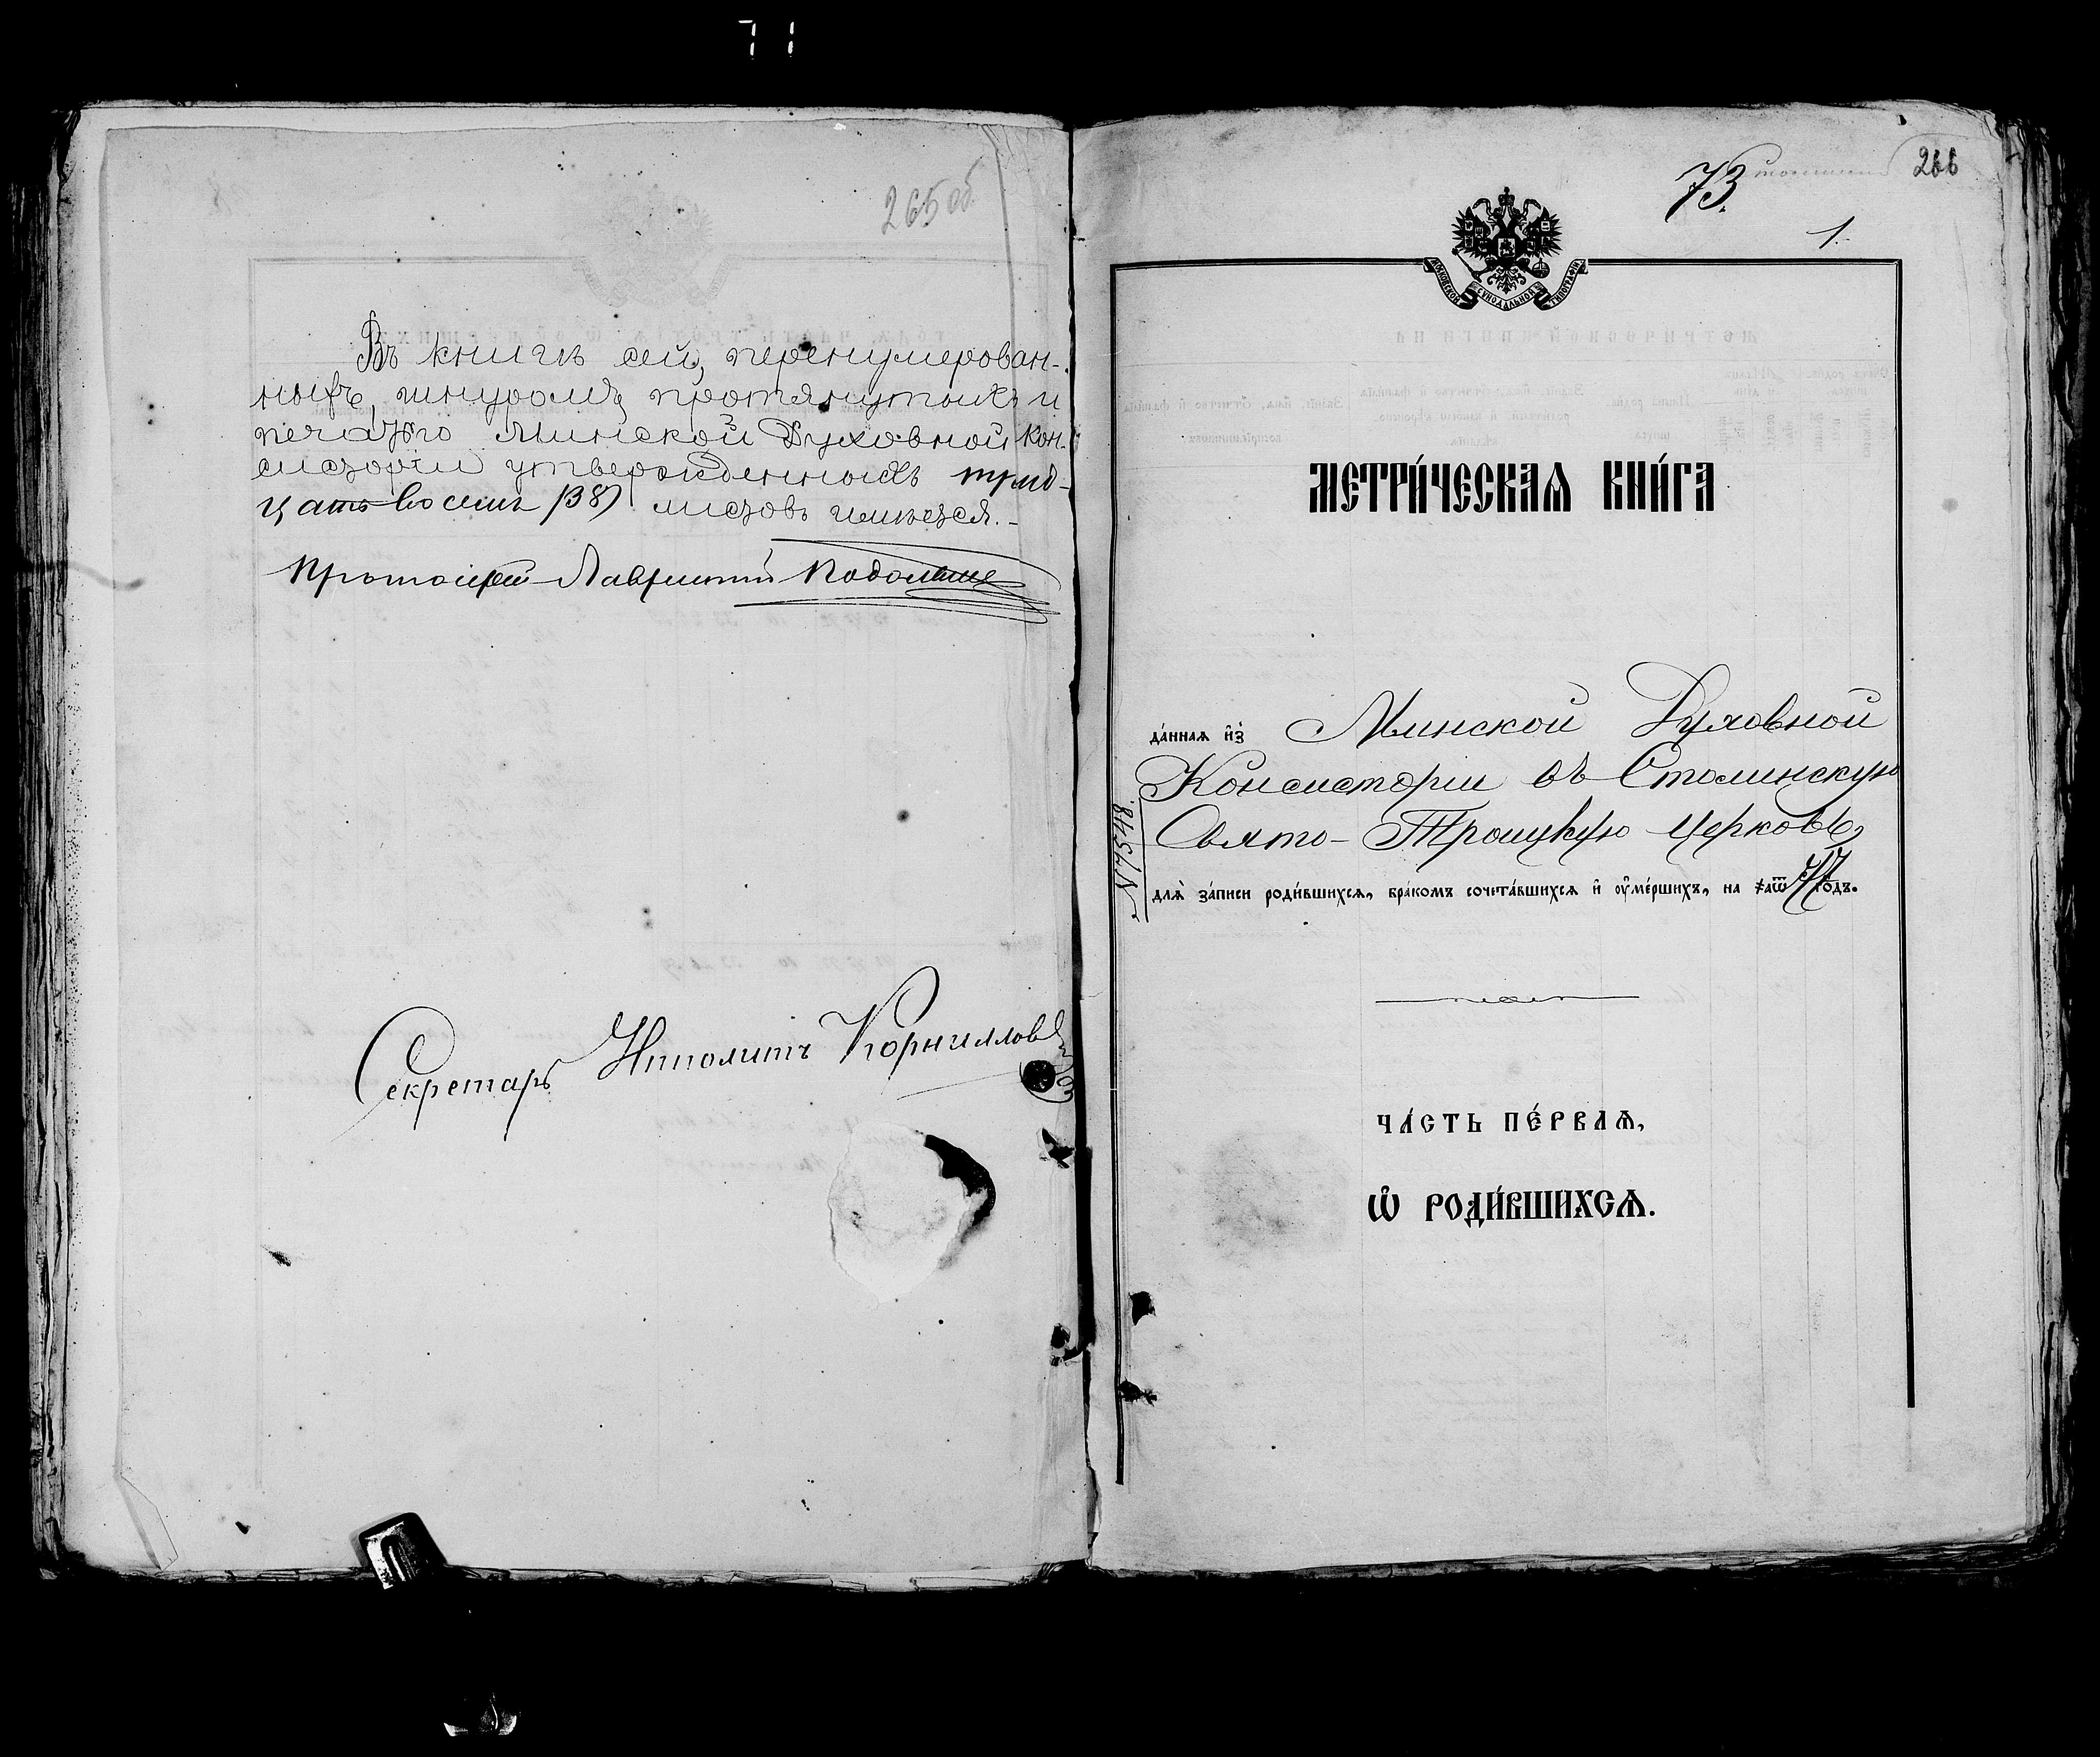 71
265 об.
Въ книгѣ сей, перенумерован-
ныхъ, шнуромъ протянутыхъ и
печатью Минской Духовной Кон-
систоріи утвержденныхъ трид-
цать восемь /38/ листовъ имѣется.-
Протоіерей Лаврентій
Секретарь Ипполитъ Корниловъ
73.
266
1.
МОСКОВСКОЙ СѴНОДАЛЬНОЙ ТИПОГРАФІИ
МЕТРИ́ЧЕСКАѦ КНИ́ГА
да́ннаѧ и҆з̾ Минской Духовной
Консисторіи въ Столинскую
Свято-Троицкую церковь,
длѧ̀ за́писи роди́вшихсѧ, бра́комъ сочета́вшихсѧ и҆ ᲂу҆ме́ршихъ, на ҂аѿ го́дъ.
№ 17548.
ЧА́СТЬ ПЕ́РВАѦ,
Ѡ҆ РОДИ́ВШИХСѦ.